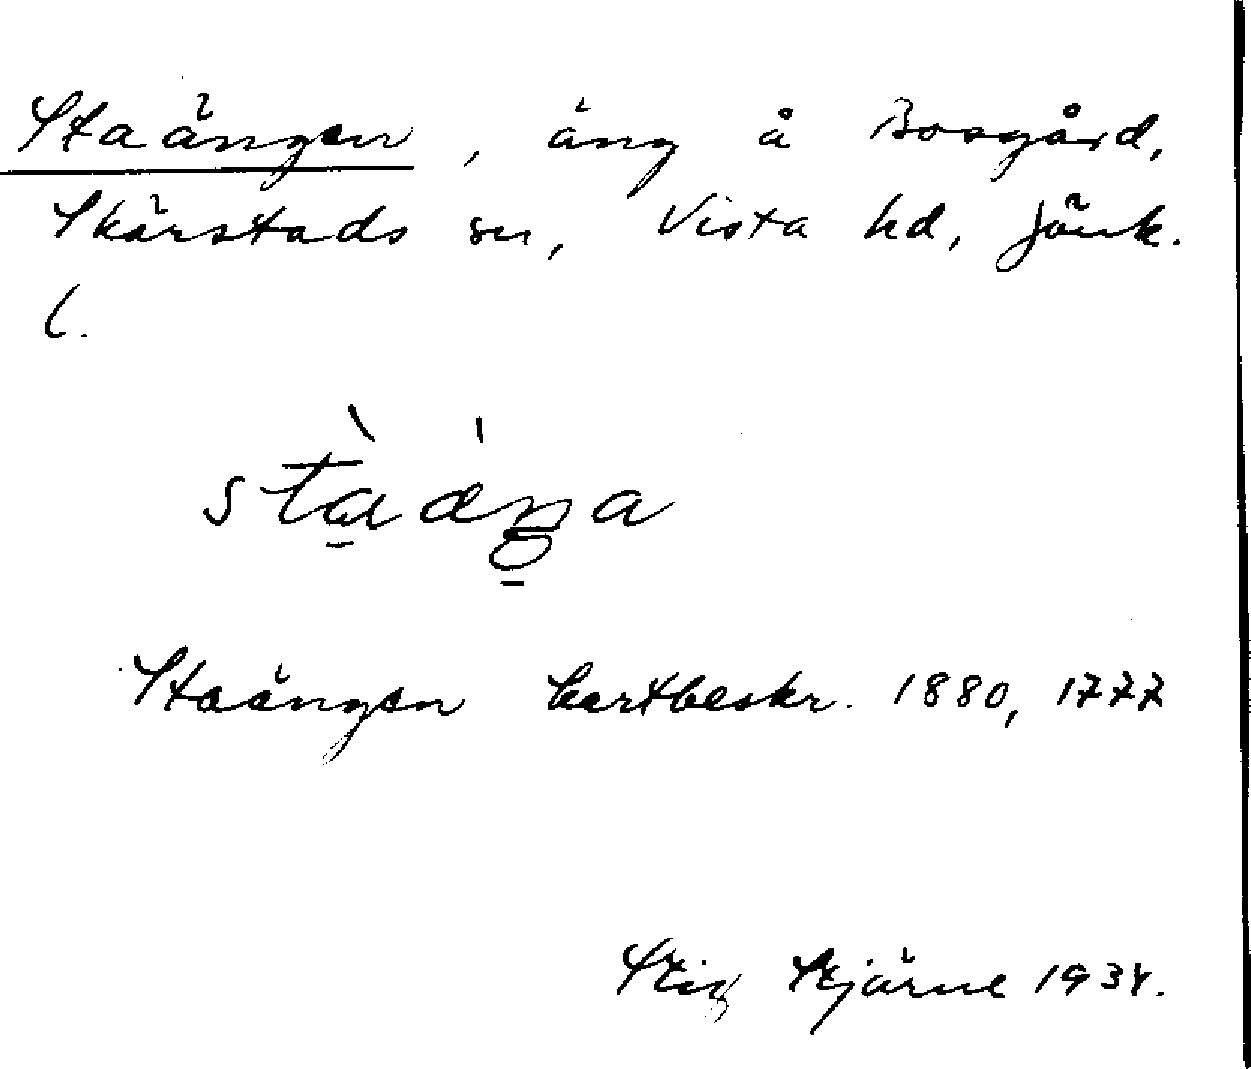 Staängen, äng å Bosgård,
Skärstads sn, Vista hd, Jönk.
l.
Staängen kartbeskr. 1880, 1777
Stig Stjärne 1934.